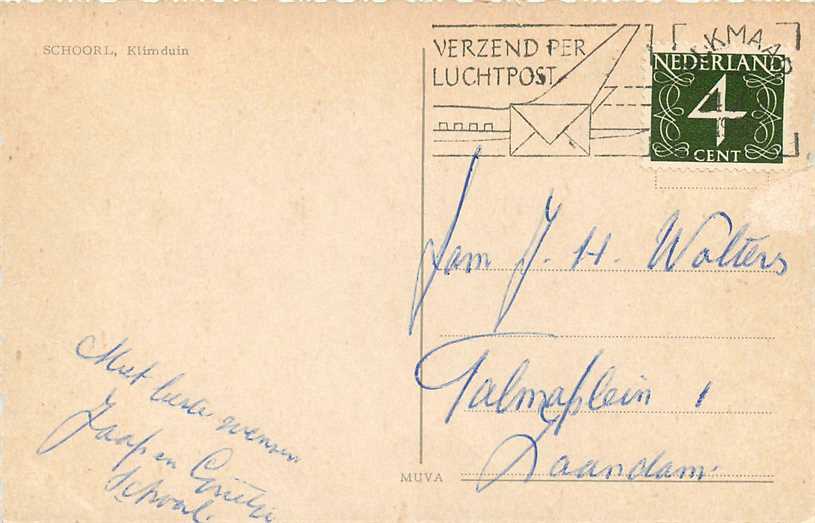 SCHOORL, Klimduin
VERZEND PER
LUCHTPOST
ALKMAAR
NEDERLAND
4
CENT
Fam J. H. Wolters
Talmaplein 1
Zaandam.
Met beste wensen
Jaap en
Schoorl.
MUVA